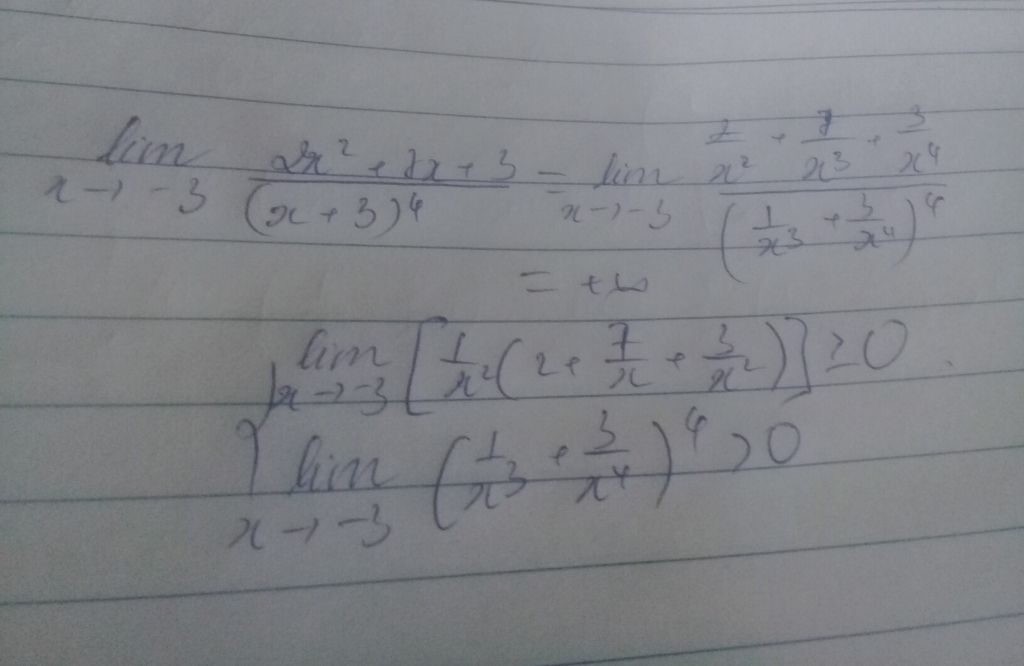 lim x→-3 (2x² + 7x + 3)/(x + 3)⁴ = lim x→-3 (2/x² + 7/x³ + 3/x⁴)/(1/x³ + 3/x⁴)⁴
= +∞
lim x→-3 [1/x² (2 + 7/x + 3/x²)] ≥ 0
lim x→-3 (1/x³ + 3/x⁴)⁴ > 0